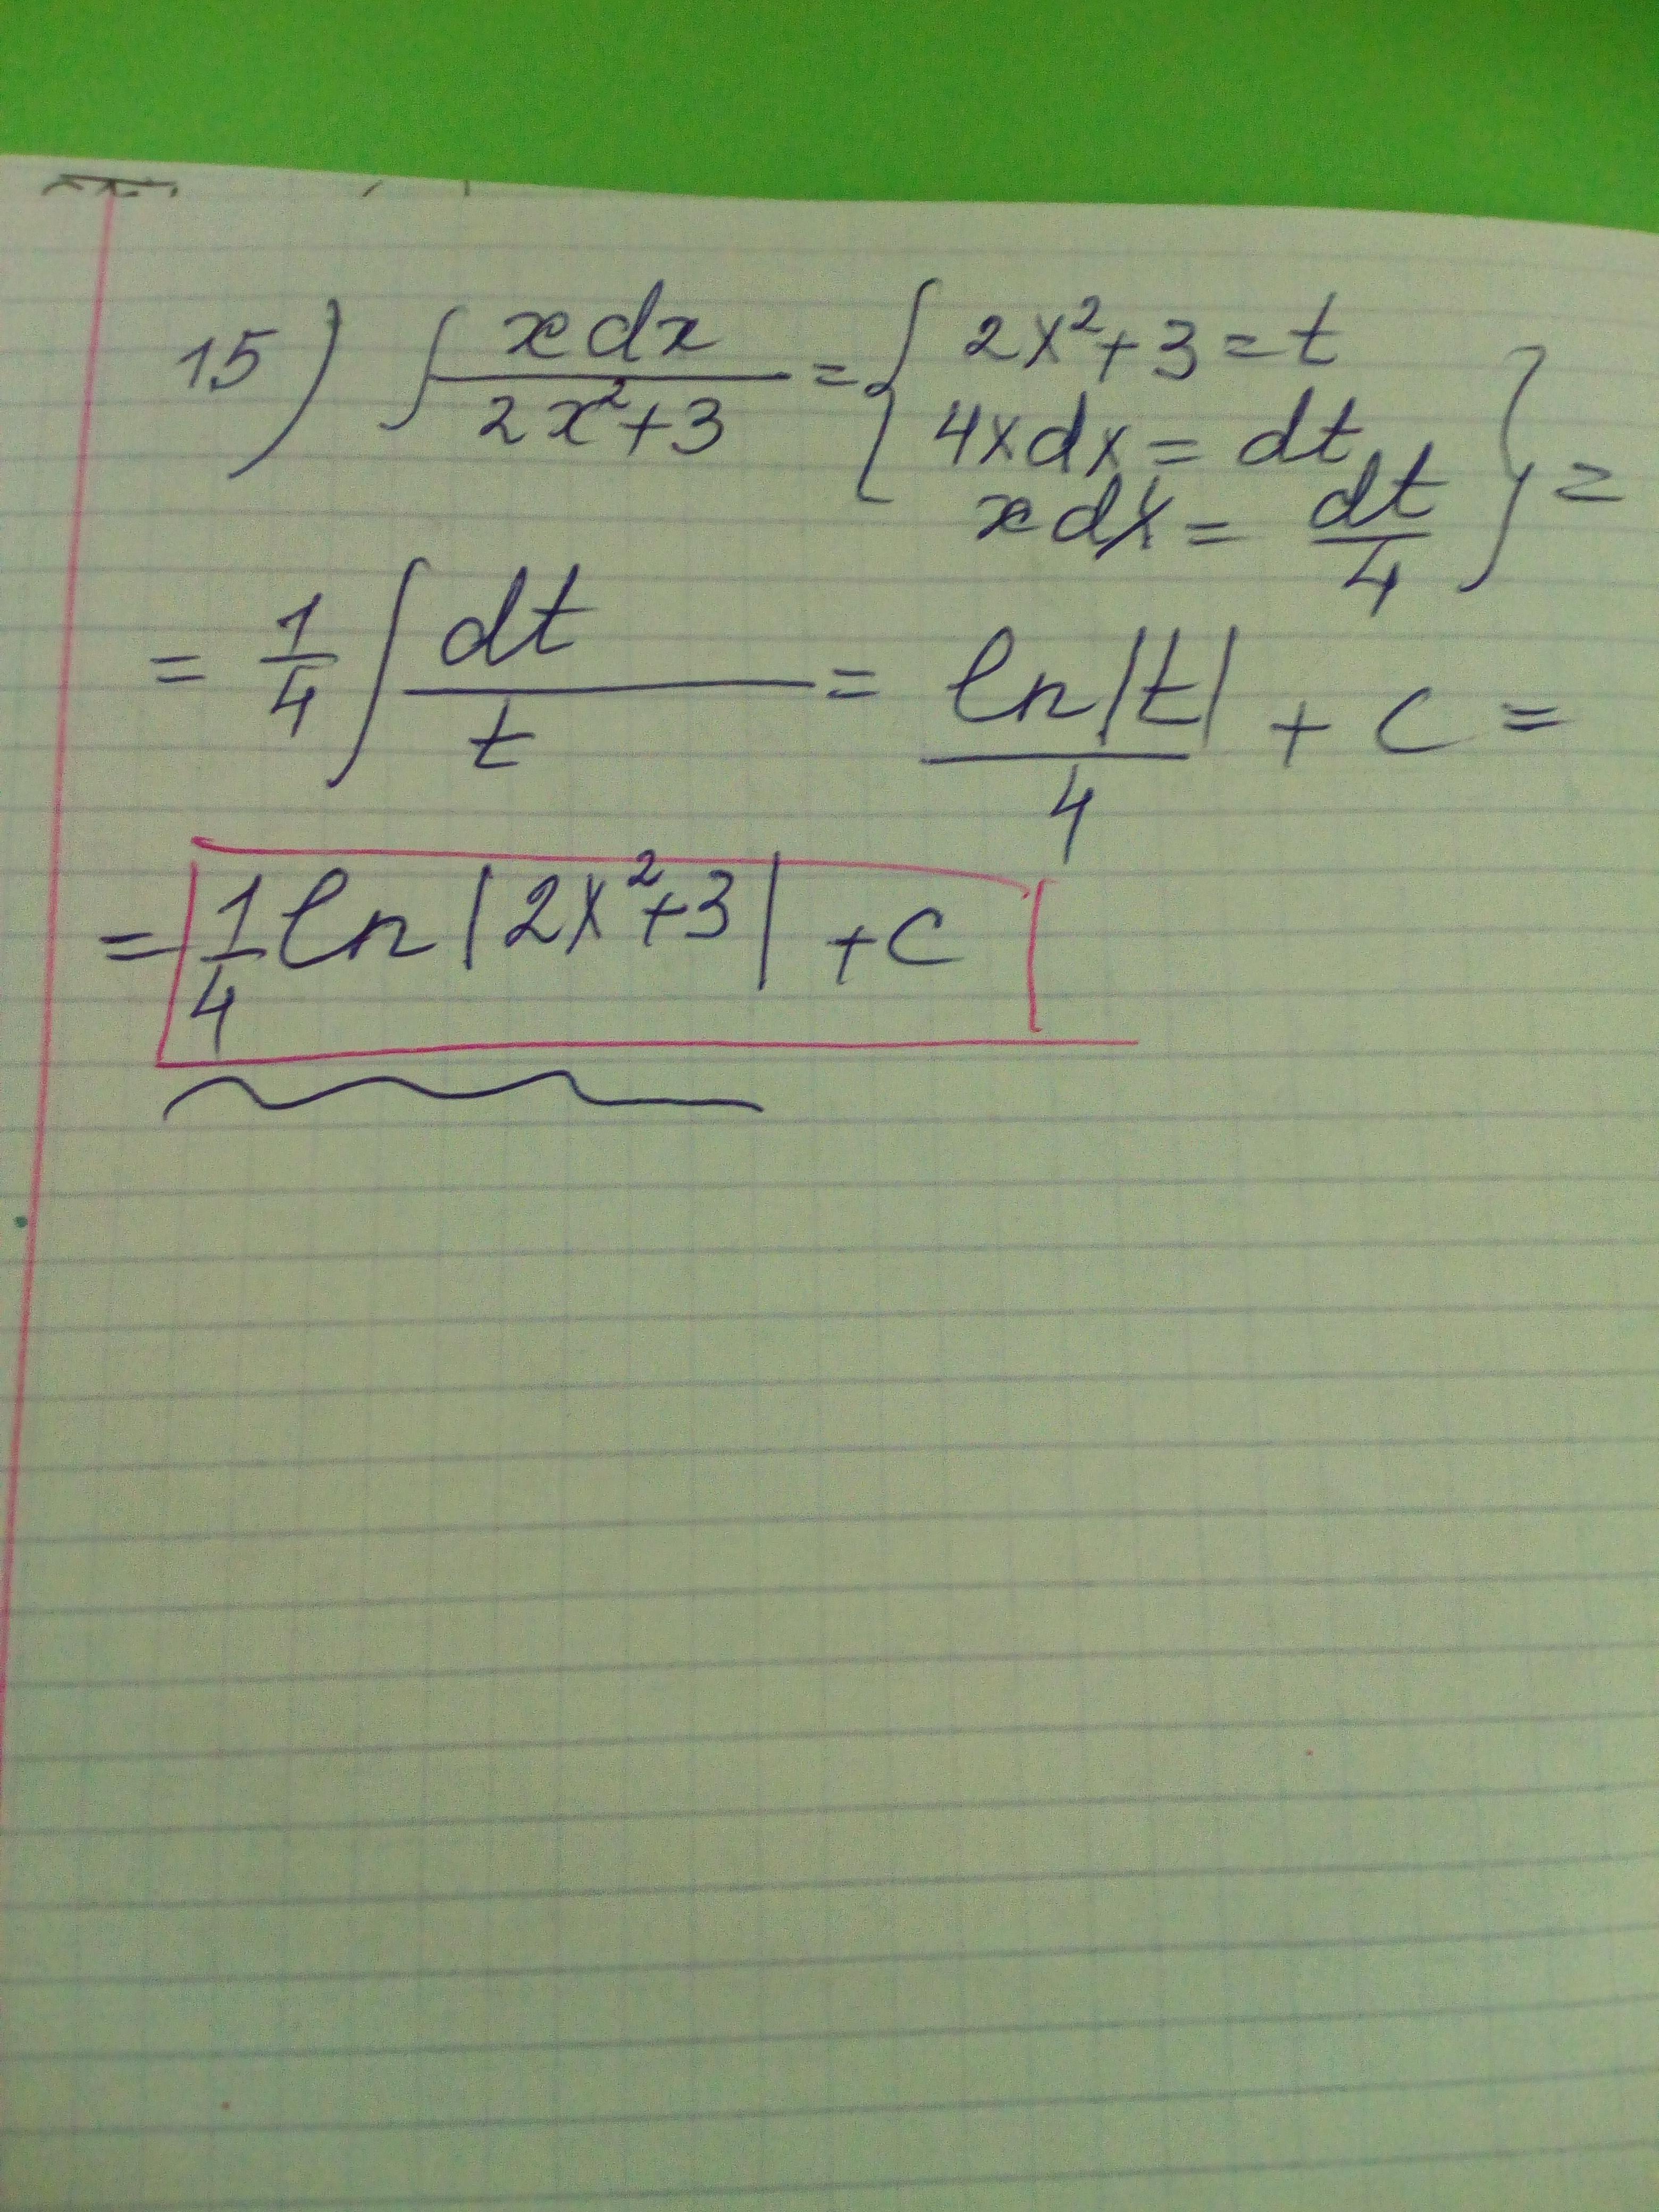 15) ∫ xdx / 2x²+3 = { 2x²+3 = t
4xdx = dt
xdx = dt/4 } =
= 1/4 ∫ dt/t = ln|t|/4 + C =
= 1/4 ln|2x²+3| + C